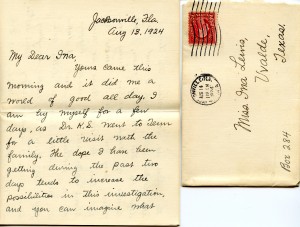 Jacksonville, Fla.
Aug 13, 1924
My Dear Ina,
Yours came this
morning and it did me a
world of good all day. I
am by myself for a few
days, as Dr. K.S. went to Tenn
for a little visit with the
family. The dope I have been
getting during the past two
days tends to increase the
possibilities in this investigation,
and you can imagine what
Miss Ina Lewis,
Uvalde,
Texas.
Box 284